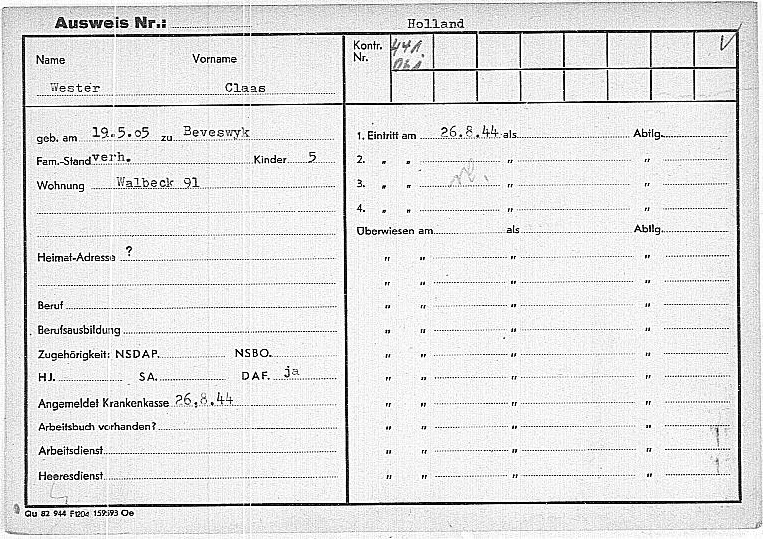 Ausweis Nr.:
Holland
Name Vorname
Wester Claas
Kontr. Nr. 441.
geb. am 19.5.05 zu Beveswyk
Fam.-Stand verh. Kinder 5
Wohnung Walbeck 91
Heimat-Adresse ?
Beruf
Berufsausbildung
Zugehörigkeit: NSDAP. NSBO.
HJ. SA. DAF. ja
Angemeldet Krankenkasse 26.8.44
Arbeitsbuch vorhanden?
Arbeitsdienst
Heeresdienst
1. Eintritt am 26.8.44 als Abtlg.
2. „ „ „ „
3. „ „ „ „
4. „ „ „ „
Überwiesen am als Abtlg.
„ „ „ „
„ „ „ „
„ „ „ „
„ „ „ „
„ „ „ „
„ „ „ „
„ „ „ „
„ „ „ „
„ „ „ „
„ „ „ „
Qu 82 944